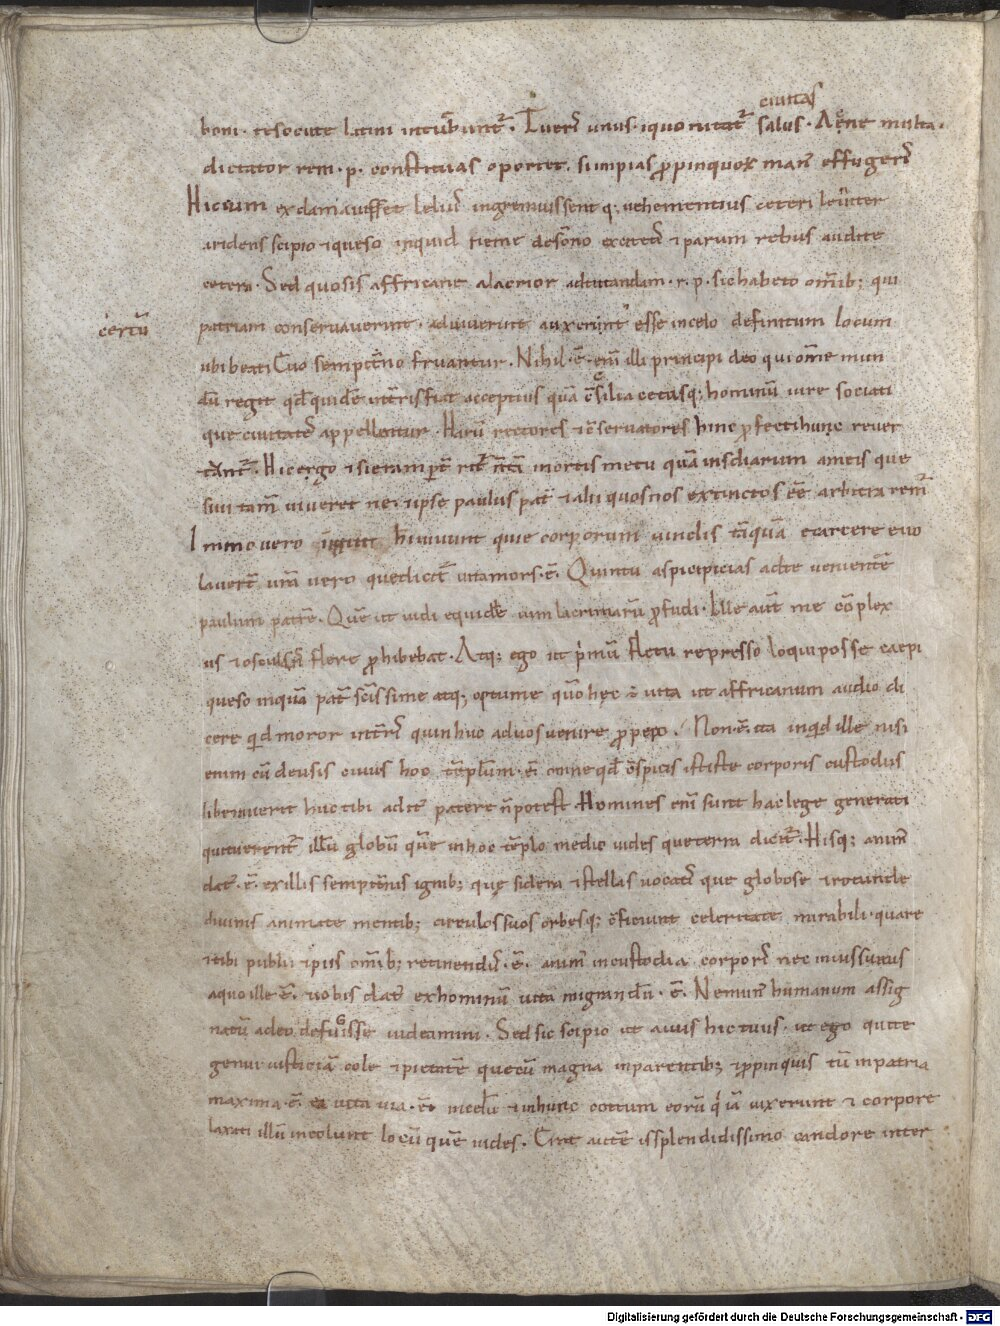 ciuitas
boni · te socii te latini intueb̄unt᷑ · Tu eri᷑ unus · i quo nitat᷑ salus · Ac ne multa ·
dictator rem · p · constituas oportet · si impias ꝓpinquoꝝ man᷑ effugeri᷑
Hic cum exclamauisset leliu᷑ ingemuissent q · uehementius ceteri leniter
aridens scipio · queso inquid ne me de sōno excitet᷑ ⁊ parum rebus audite
cetera · Sed quo sis affricane alacrior ad tutandam · r · p · sic habeto om̄ib; qui
certū
patriam conservaverint · adiuverint auxerint esse in celo definitum locum
ubi beati Euo sempit̄no fruantur · Nihil · ē · eni᷑ illi principi deo qui om̄e mun
dū regit qd̄ quidē in terris fiat acceptius quā cōsilia cetusq; hominū iure sociati
que ciuitate᷑ appellantur · Harū rectores ⁊ cōservatores hinc ꝓfecti hunc rever
tant᷑ · Hic ergo ⁊ si eram ꝑt᷑rit᷑ n̄ tā mortis metu quā insidiarum a meis que
sivi tam̄ viveret ne · ipse paulus pat᷑ ⁊ alii quos nos extinctos eē arbitraremᷣ
Immo vero inquit hi vivunt qui e corporum vinclis tāquā e carcere evo
laverᷣt vr̄a vero que dicit᷑ vita mors · ē · Quin tu aspicis ad te venientē
paulum patrē · Quē ut vidi equidē vim lacrimarū ꝓfudi · Ille aut̄ me cōplex
us ⁊ osculans flere ꝓhibebat · Atq; ego ut p᷑mū fletu represso loqui posse caepi
queso inquā pat᷑ scīssime atq; optume qūo hęc ē vita ut affricanum audio di
cere qid moror in terri᷑ quin huc ad vos venire ꝓpero · Non · ē · ita inqid ille nisi
enim cū deus is cuius hoc tēplum · ē · omne qd̄ cōspicis istis te corporis custodiis
liberaverit huc tibi adit᷑ patere n̄ potest · Homines eni᷑ sunt hac lege generati
qui tuerent᷑ illū globū quē in hoc tēplo mediū vides que terra dicit᷑ · Hisq; anim᷑
dat᷑ · ē · ex illis sempit᷑nis ignib; quę sidera ⁊ stellas vocati᷑ que globose ⁊ rotunde
divinis animate mentib; circulos suos orbesq; cōficiunt celeritate mirabili · quare
⁊ tibi publii ⁊ piis om̄ib; retinendu᷑ · ē · anim᷑ in custodia corpori᷑ nec iniussu eius
a quo ille ē · vobis dat᷑ ex hominū vita migrandū · ē · Ne mun᷑ humanum assig
natū a deo defugisse videamini · Sed sic scipio ut avus hic tuus · ut ego qui te
genui iusticiā cole ⁊ pietatē que cū magna in parentib; ⁊ ꝓpinquis tū in patria
maxima · ē · ea vita via · ē · in celū ⁊ in hunc coetum eorū q᷑ iā vixerunt ⁊ corpore
laxati illū incolunt locū quē vides · Erat autē is splendidissimo candore inter
Digitalisierung gefördert durch die Deutsche Forschungsgemeinschaft - DFG